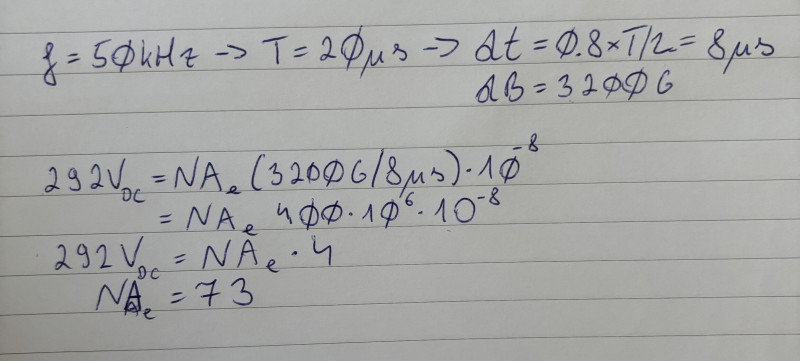 f = 50kHz -> T = 20μs -> dt = 0.8×T/2 = 8μs
dB = 3200G
292V_DC = NA_e (3200G/8μs)·10^-8
= NA_e 400·10^6·10^-8
292V_DC = NA_e · 4
NA_e = 73